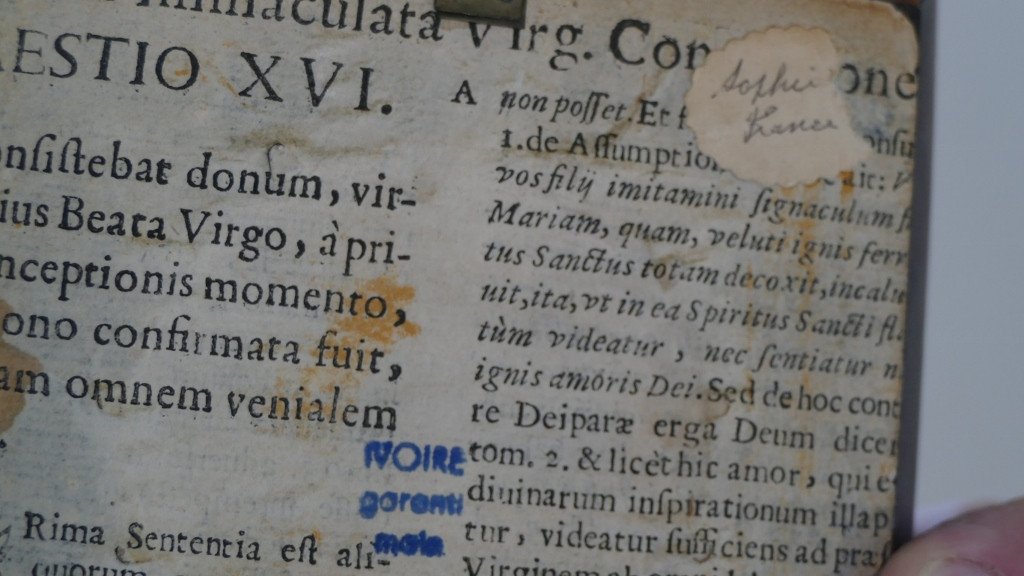 Immaculata Virg. Con one
QUÆSTIO XVI.
onſiſtebat donum, vir-
ius Beata Virgo, à pri-
nceptionis momento,
ono confirmata fuit,
am omnem venialem
Rima Sententia eſt ali-
quorum
A
non poſſet. Et f
1. de Aſſumptio onſu
ait: V
vos filij imitamini ſignaculum ſ
Mariam, quam, veluti ignis ferr
tus Sanctus totam decoxit, incalu
uit, ita, vt in ea Spiritus Sancti fl
tùm videatur, nec ſentiatur n
ignis amoris Dei. Sed de hoc cont
re Deiparæ erga Deum dicer
tom. 2. & licèt hic amor, qui e
diuinarum inſpirationum illap
tur, videatur ſufficiens ad præſ
Virginem
Sophie
France
IVOIRE
garanti